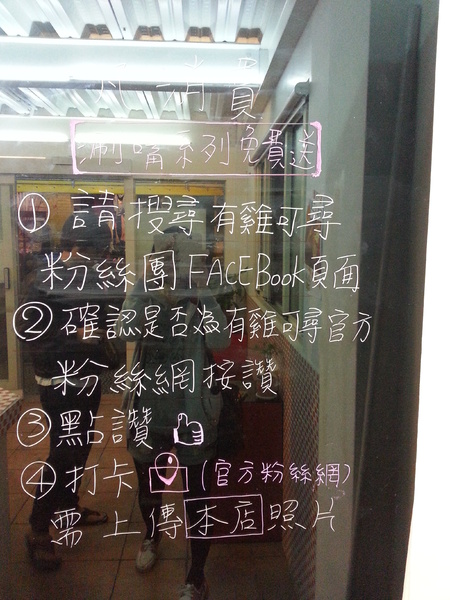 消費
涮嘴系列免費送
① 請搜尋有雞可尋
粉絲團FACEBook頁面
② 確認是否為有雞可尋官方
粉絲網按讚
③ 點讚
④ 打卡 (官方粉絲網)
需上傳本店照片